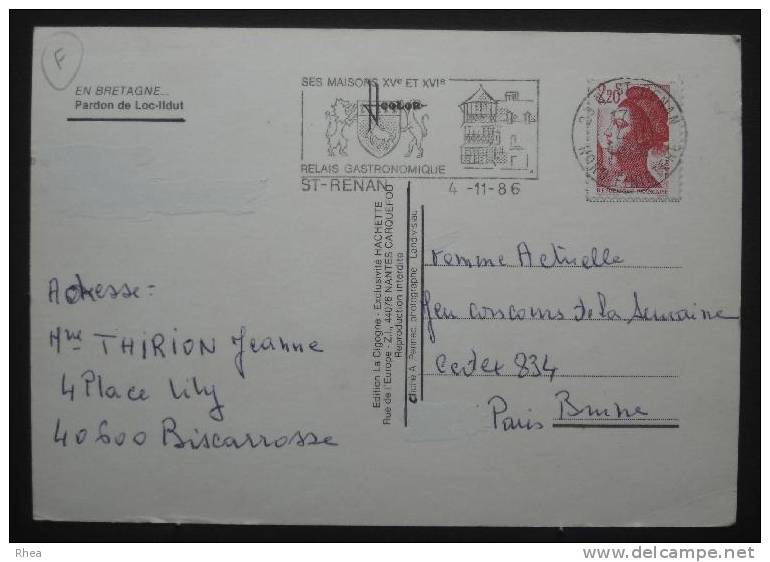 F
EN BRETAGNE...
Pardon de Loc-Ildut
SES MAISONS XVe ET XVIe
COLOR
RELAIS GASTRONOMIQUE
ST-RENAN
4 -11-86
2,20
ST-RENAN
REPUBLIQUE FRANÇAISE
Edition La Cigogne - Exclusivité HACHETTE
Rue de l'Europe - Z.I., 44076 NANTES CARQUEFOU
Reproduction interdite
Cliché A. Pennec, photographe - Landivisiau
Adresse :
Mme THIRION Jeanne
4 Place Lily
40600 Biscarrosse
Femme Actuelle
Jeu concours de la Semaine
Cedex 834
Paris Brune
Rhea
delcampe.net